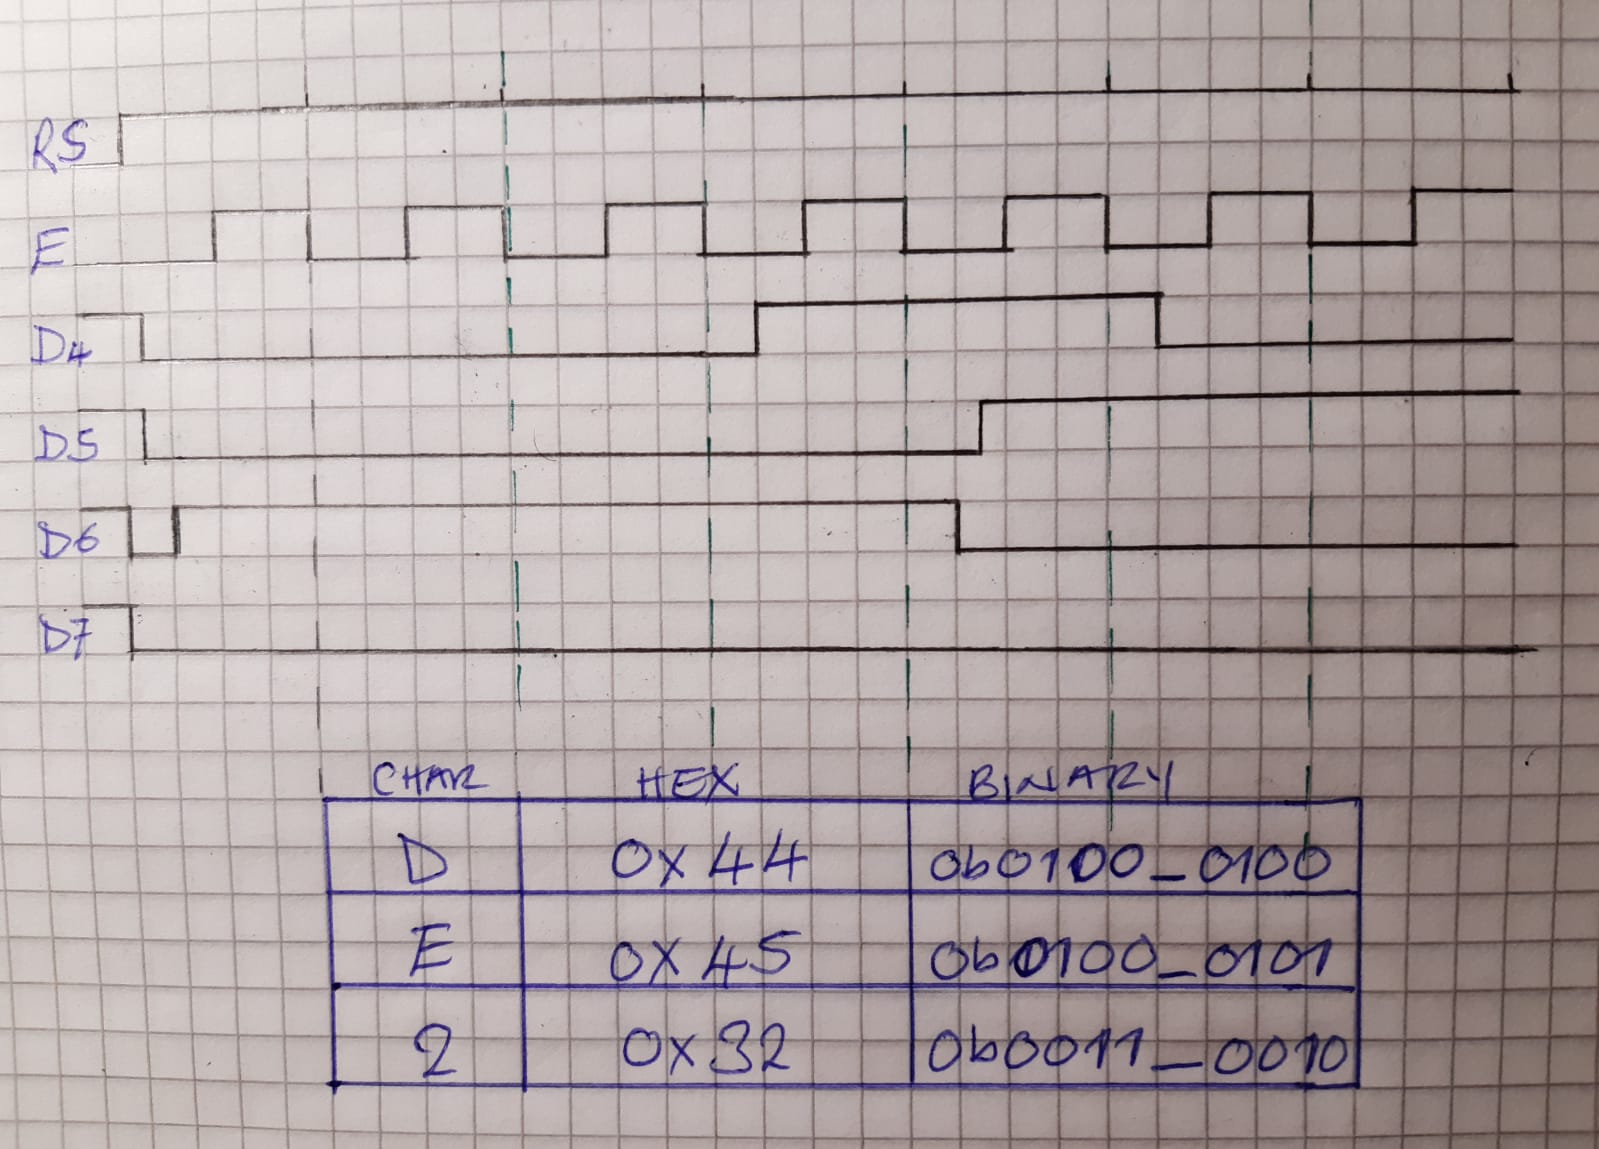 RS
E
D4
D5
D6
D7
CHAR HEX BINARY
D 0x44 0b0100_0100
E 0x45 0b0100_0101
2 0x32 0b0011_0010